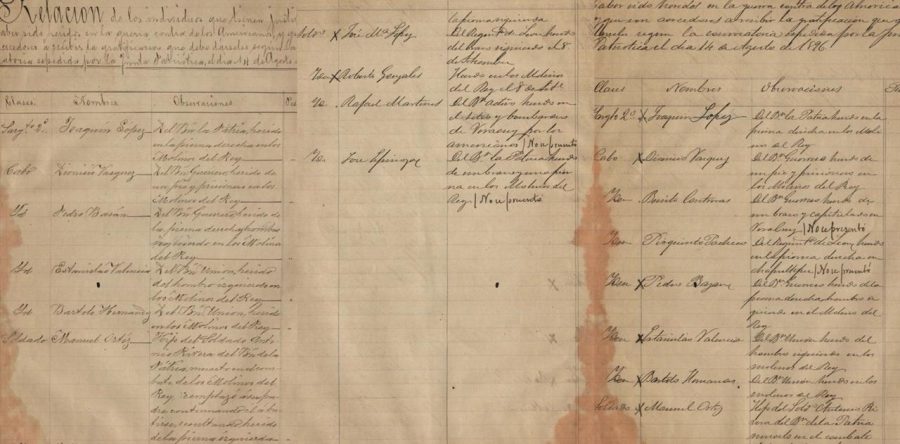 Relacion de los individuos que tienen justi
haber sido heridos en la guerra contra de los Americanos, y
a recibir la gratificacion que debe darseles segun la
expedida por la Junta Patriotica, el dia 14 de Agosto
Clases Nombres Observaciones
Sargto 2º Joaquin Lopez Del Bon la Patria, herido
en la pierna derecha en los
Molinos del Rey
Cabo Dionicio Vasquez Del Bon Guerrero, herido de
un pie y prisionero en los
Molinos del Rey
Id Pedro Bazán Del Bon Guerrero herido de
la pierna derecha y hombro
izquierdo en los Molinos
del Rey
Id Estanislao Valencia Del Bon Union, herido
del hombro izquierdo en
los Molinos del Rey
Id Bartolo Hernandez Del Bon Union, herido
en los Molinos del Rey
Soldado Manuel Ortiz Hijo del Soldado Anto
nio Rivera del Bon de la
Patria, muerto en el com
bate de los Molinos del
Rey
continuando el
herido
de la pierna izquierda
la pierna izquierda
José Ma Lopez Del Regimto de herido
del izquierdo el 8
de Setiembre
Iden x Roberto Gonzales Herido en los Molinos
del Rey el 8 de Set.
Id. Rafael Martines Del Bn activo herido en
el sitio y bombardeo
de Veracruz por los
americanos / No se presentó
Iden José Espinoza Del Bn la Patria herido
de un brazo y una pier
na en los Molinos del
Rey / No se presentó
haber sido heridos en la guerra contra de los Americ
la gratificacion que
segun la convocatoria expedida por la Junta
Patriotica el dia 14 de Agosto de 1896.
Clases Nombres Observaciones
Sargto 2º x Joaquin Lopez Del Bn la Patria herido en la
pierna derecha en los Moli
nos del Rey
Cabo x Dionicio Vasquez Del Bn Guerrero herido de
un pie y prisionero en
los Molinos del Rey
Iden Benito Contreras Del Bn Guerrero herido de
un brazo y capitulado en
Veracruz / No se presentó
Iden Pacheco Del Regimto de herido
en la pierna derecha en
Chapultepec / No se presentó
Iden x Pedro Bazan Del Bn Guerrero herido de la
pierna derecha, hombro iz
quierdo en el Molino del
Rey
Iden x Estanislao Valencia Del Bn Union herido del
hombro izquierdo en los
molinos del Rey
Iden x Bartolo Hernandes Del Bn Union herido en los
molinos del Rey
Soldado x Manuel Ortiz Hijo del Soldo Antonio Ri
vera del Bn de la Patria
muerto en el combate